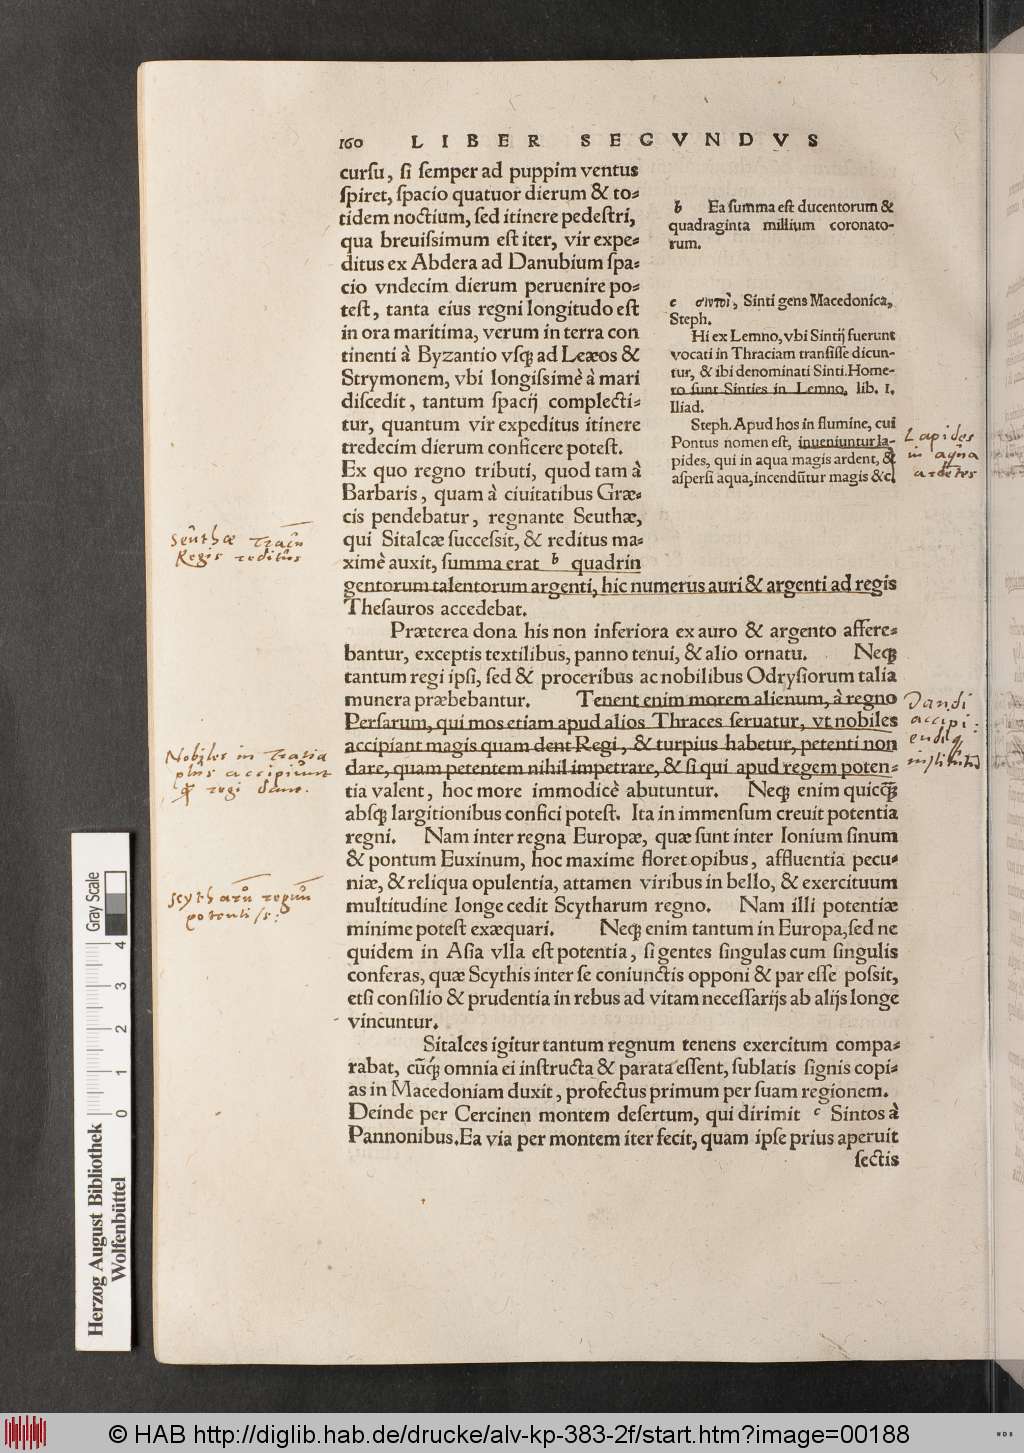 160 LIBER SECVNDVS
cursu, si semper ad puppim ventus
spiret, spacio quatuor dierum & to=
tidem noctium, sed itinere pedestri,
qua breuissimum est iter, vir expe=
ditus ex Abdera ad Danubium spa=
cio vndecim dierum peruenire po=
test, tanta eius regni longitudo est
in ora maritima, verum in terra con
tinenti à Byzantio vsq̃ ad Leæos &
Strymonem, vbi longissimè à mari
discedit, tantum spacij complecti=
tur, quantum vir expeditus itinere
tredecim dierum conficere potest.
Ex quo regno tributi, quod tam à
Barbaris, quam à ciuitatibus Græ=
cis pendebatur, regnante Seuthæ,
qui Sitalcæ successit, & reditus ma=
ximè auxit, summa erat b quadrin
gentorum talentorum argenti, hic numerus auri & argenti ad regis
Thesauros accedebat.
Præterea dona his non inferiora ex auro & argento affere=
bantur, exceptis textilibus, panno tenui, & alio ornatu. Neq̃
tantum regi ipsi, sed & proceribus ac nobilibus Odrysiorum talia
munera præbebantur. Tenent enim morem alienum, à regno
Persarum, qui mos etiam apud alios Thraces seruatur, vt nobiles
accipiant magis quam dent Regi, & turpius habetur, petenti non
dare, quam petentem nihil impetrare, & si qui apud regem poten=
tia valent, hoc more immodicè abutuntur. Neq̃ enim quicq̃
absq̃ largitionibus confici potest. Ita in immensum creuit potentia
regni. Nam inter regna Europæ, quæ sunt inter Ionium sinum
& pontum Euxinum, hoc maxime floret opibus, affluentia pecu=
niæ, & reliqua opulentia, attamen viribus in bello, & exercituum
multitudine longe cedit Scytharum regno. Nam illi potentiæ
minime potest exæquari. Neq̃ enim tantum in Europa, sed ne
quidem in Asia vlla est potentia, si gentes singulas cum singulis
conferas, quæ Scythis inter se coniunctis opponi & par esse possit,
etsi consilio & prudentia in rebus ad vitam necessarijs ab alijs longe
vincuntur.
Sitalces igitur tantum regnum tenens exercitum compa=
rabat, cũq́ omnia ei instructa & parata essent, sublatis signis copi=
as in Macedoniam duxit, profectus primum per suam regionem.
Deinde per Cercinen montem desertum, qui dirimit c Sintos à
Pannonibus. Ea via per montem iter fecit, quam ipse prius aperuit
sectis
b Ea summa est ducentorum &
quadraginta millium coronato-
rum.
c σιντοὶ, Sinti gens Macedonica,
Steph.
Hi ex Lemno, vbi Sintij fuerunt
vocati in Thraciam transisse dicun-
tur, & ibi denominati Sinti. Home-
ro sunt Sinties in Lemno, lib. 1.
Iliad.
Steph. Apud hos in flumine, cui
Pontus nomen est, inueniuntur la-
pides, qui in aqua magis ardent, &
aspersi aqua, incendũtur magis &c.
Lapides
in aqua
ardētes
Seuthæ Tracũ
Regis reditus
Dandi
accipi:
endiq
institutio
Nobiles in Tracia
plus accipiunt
q̃ regi dant.
Scytharũ regnũ
potentiss:
Gray Scale
0 1 2 3 4
Herzog August Bibliothek
Wolfenbüttel
© HAB http://diglib.hab.de/drucke/alv-kp-383-2f/start.htm?image=00188